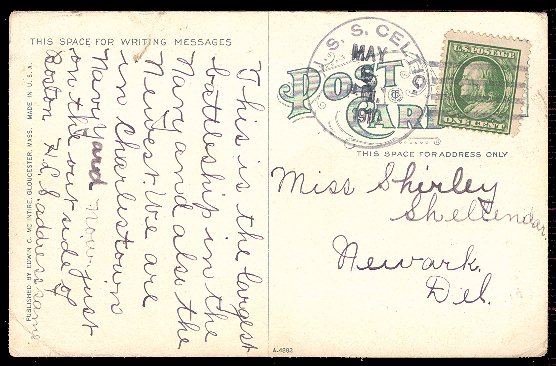 THIS SPACE FOR WRITING MESSAGES
This is the largest
battleship in the
Navy and also the
Newest. We are
in Charlestown
Navy yard now. just
on the out side of
Boston address same
PUBLISHED BY EDWIN C. MC INTIRE, GLOUCESTER, MASS. MADE IN U.S.A.
U. S. S. CELTIC
MAY
POST
CARD
U.S. POSTAGE
ONE CENT
THIS SPACE FOR ADDRESS ONLY
Miss Shirley
Newark.
Del.
A-4882